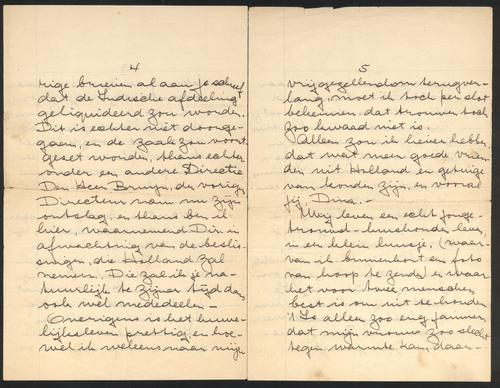 4
rige brieven al aan je schreef,
dat de Indische afdeeling
geliquideerd zou worden.
Dit is echter niet doorge-
gaan, en de zaak zou voort
gezet worden, thans echter
onder een andere Directie
Den Heer Bruijn, de vorige
Directeur nam nu zijn
ontslag, en thans ben ik
hier, waarnemend Dir. in
afwachting van de beslis-
singen, die Holland zal
nemen. Die zal ik je na-
tuurlijk te zijner tijd dan
ook wel mededeelen. -
Overigens is het huwe-
lijksleven prettig, en hoe-
wel ik weleens naar mijn
5
vrijgezellendom terugver-
lang, moet ik toch per slot
bekennen, dat trouwen toch
zoo kwaad niet is.
Alleen zou ik liever hebben,
dat wat meer goede vrien-
den uit Holland er getuige
van konden zijn, en vooral
jij, Dina. -
Mijn leven een echt jonge-
trouwd-huishouden leven,
in een klein huisje, (waar-
van ik binnenkort een foto
van hoop te zenden) en waar
het voor twee menschen
best is om uit te houden
't Is alleen zoo erg jammer,
dat mijn vrouw zoo slecht
tegen warmte kan, daar-